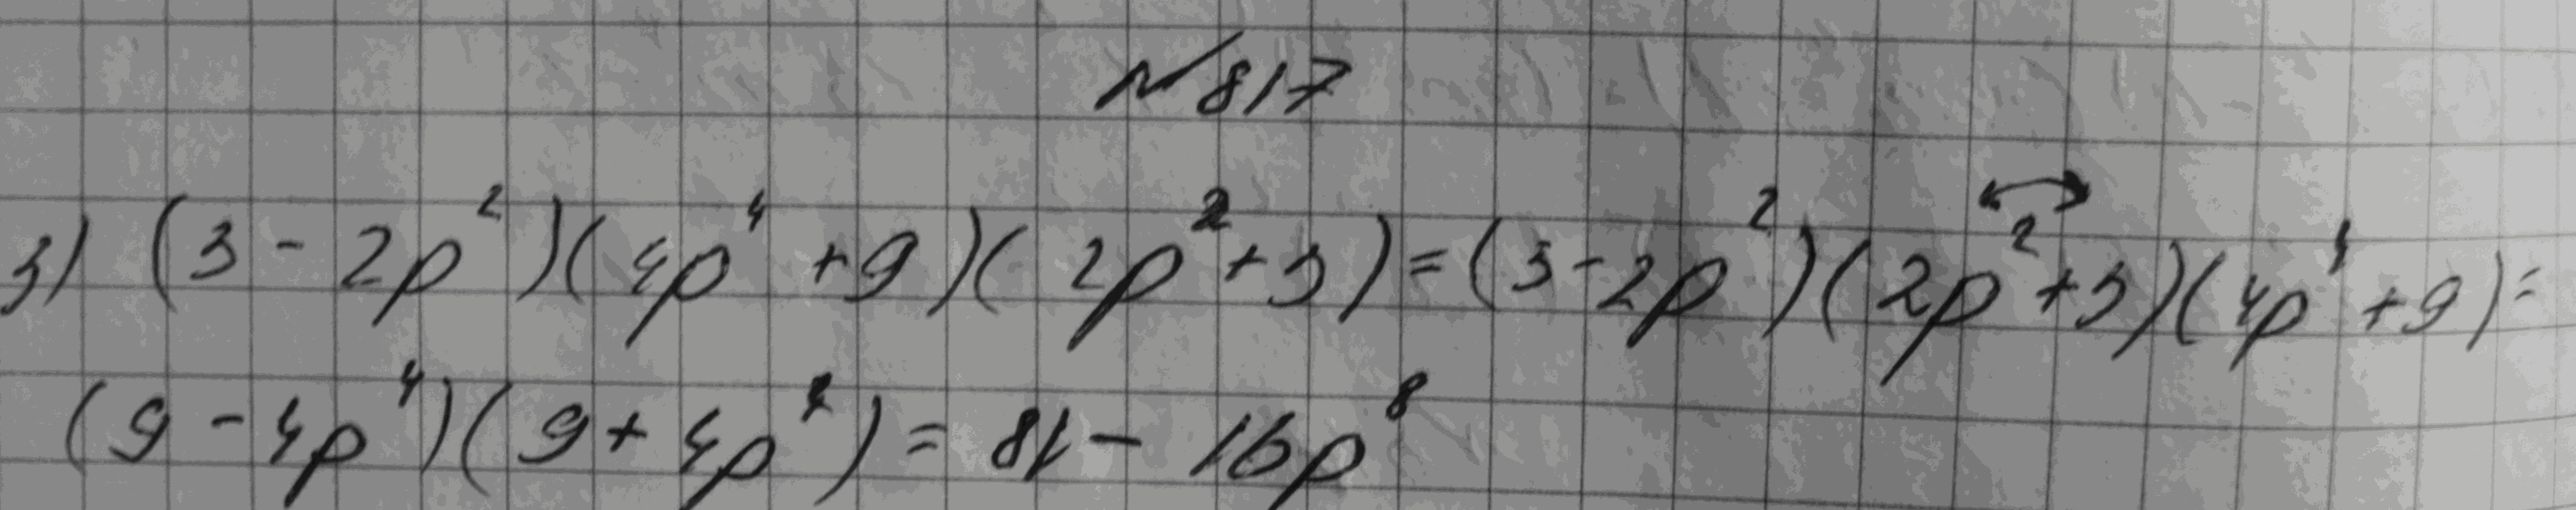 №817
3) (3 - 2p²)(4p⁴ + 9)(2p² + 3) = (3 - 2p²)(2p² + 3)(4p⁴ + 9) =
(9 - 4p⁴)(9 + 4p⁴) = 81 - 16p⁸